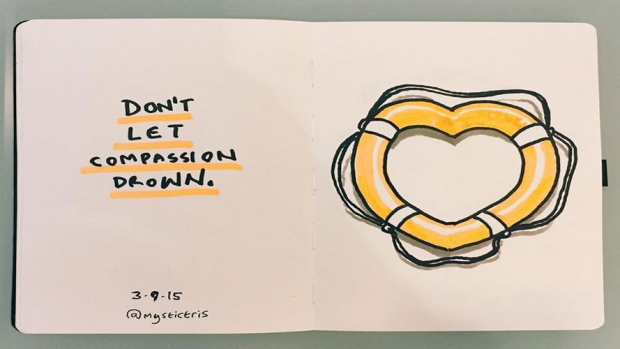 DON'T
LET
COMPASSION
DROWN.
3-9-15
@mystictris